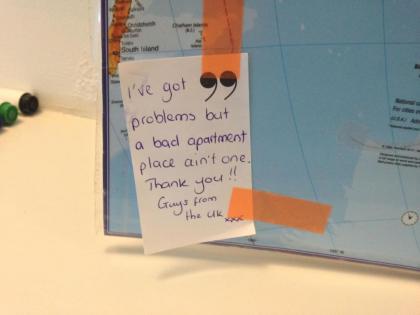 Christchurch
Chatham Islands
(N.Z.)
South Island
I've got ❟❟
problems but
a bad apartment
place ain't one.
Thank you!!
Guys from
the UK xxx